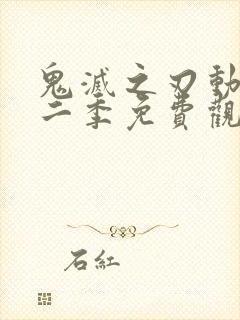 鬼滅之刃動
二季免費觀
石紅